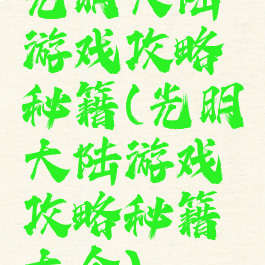 光明大陆
游戏攻略
秘籍(光明
大陆游戏
攻略秘籍
大全)